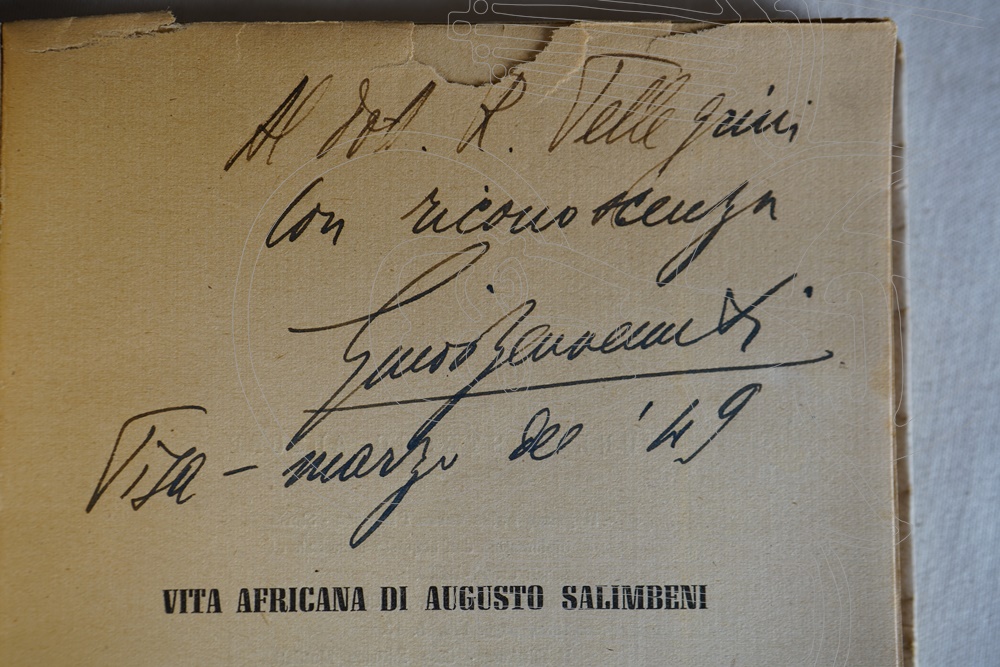 Al dot. R. Pellegrini
con riconoscenza
Guido Benvenuti
Pisa - marzo del '49
VITA AFRICANA DI AUGUSTO SALIMBENI